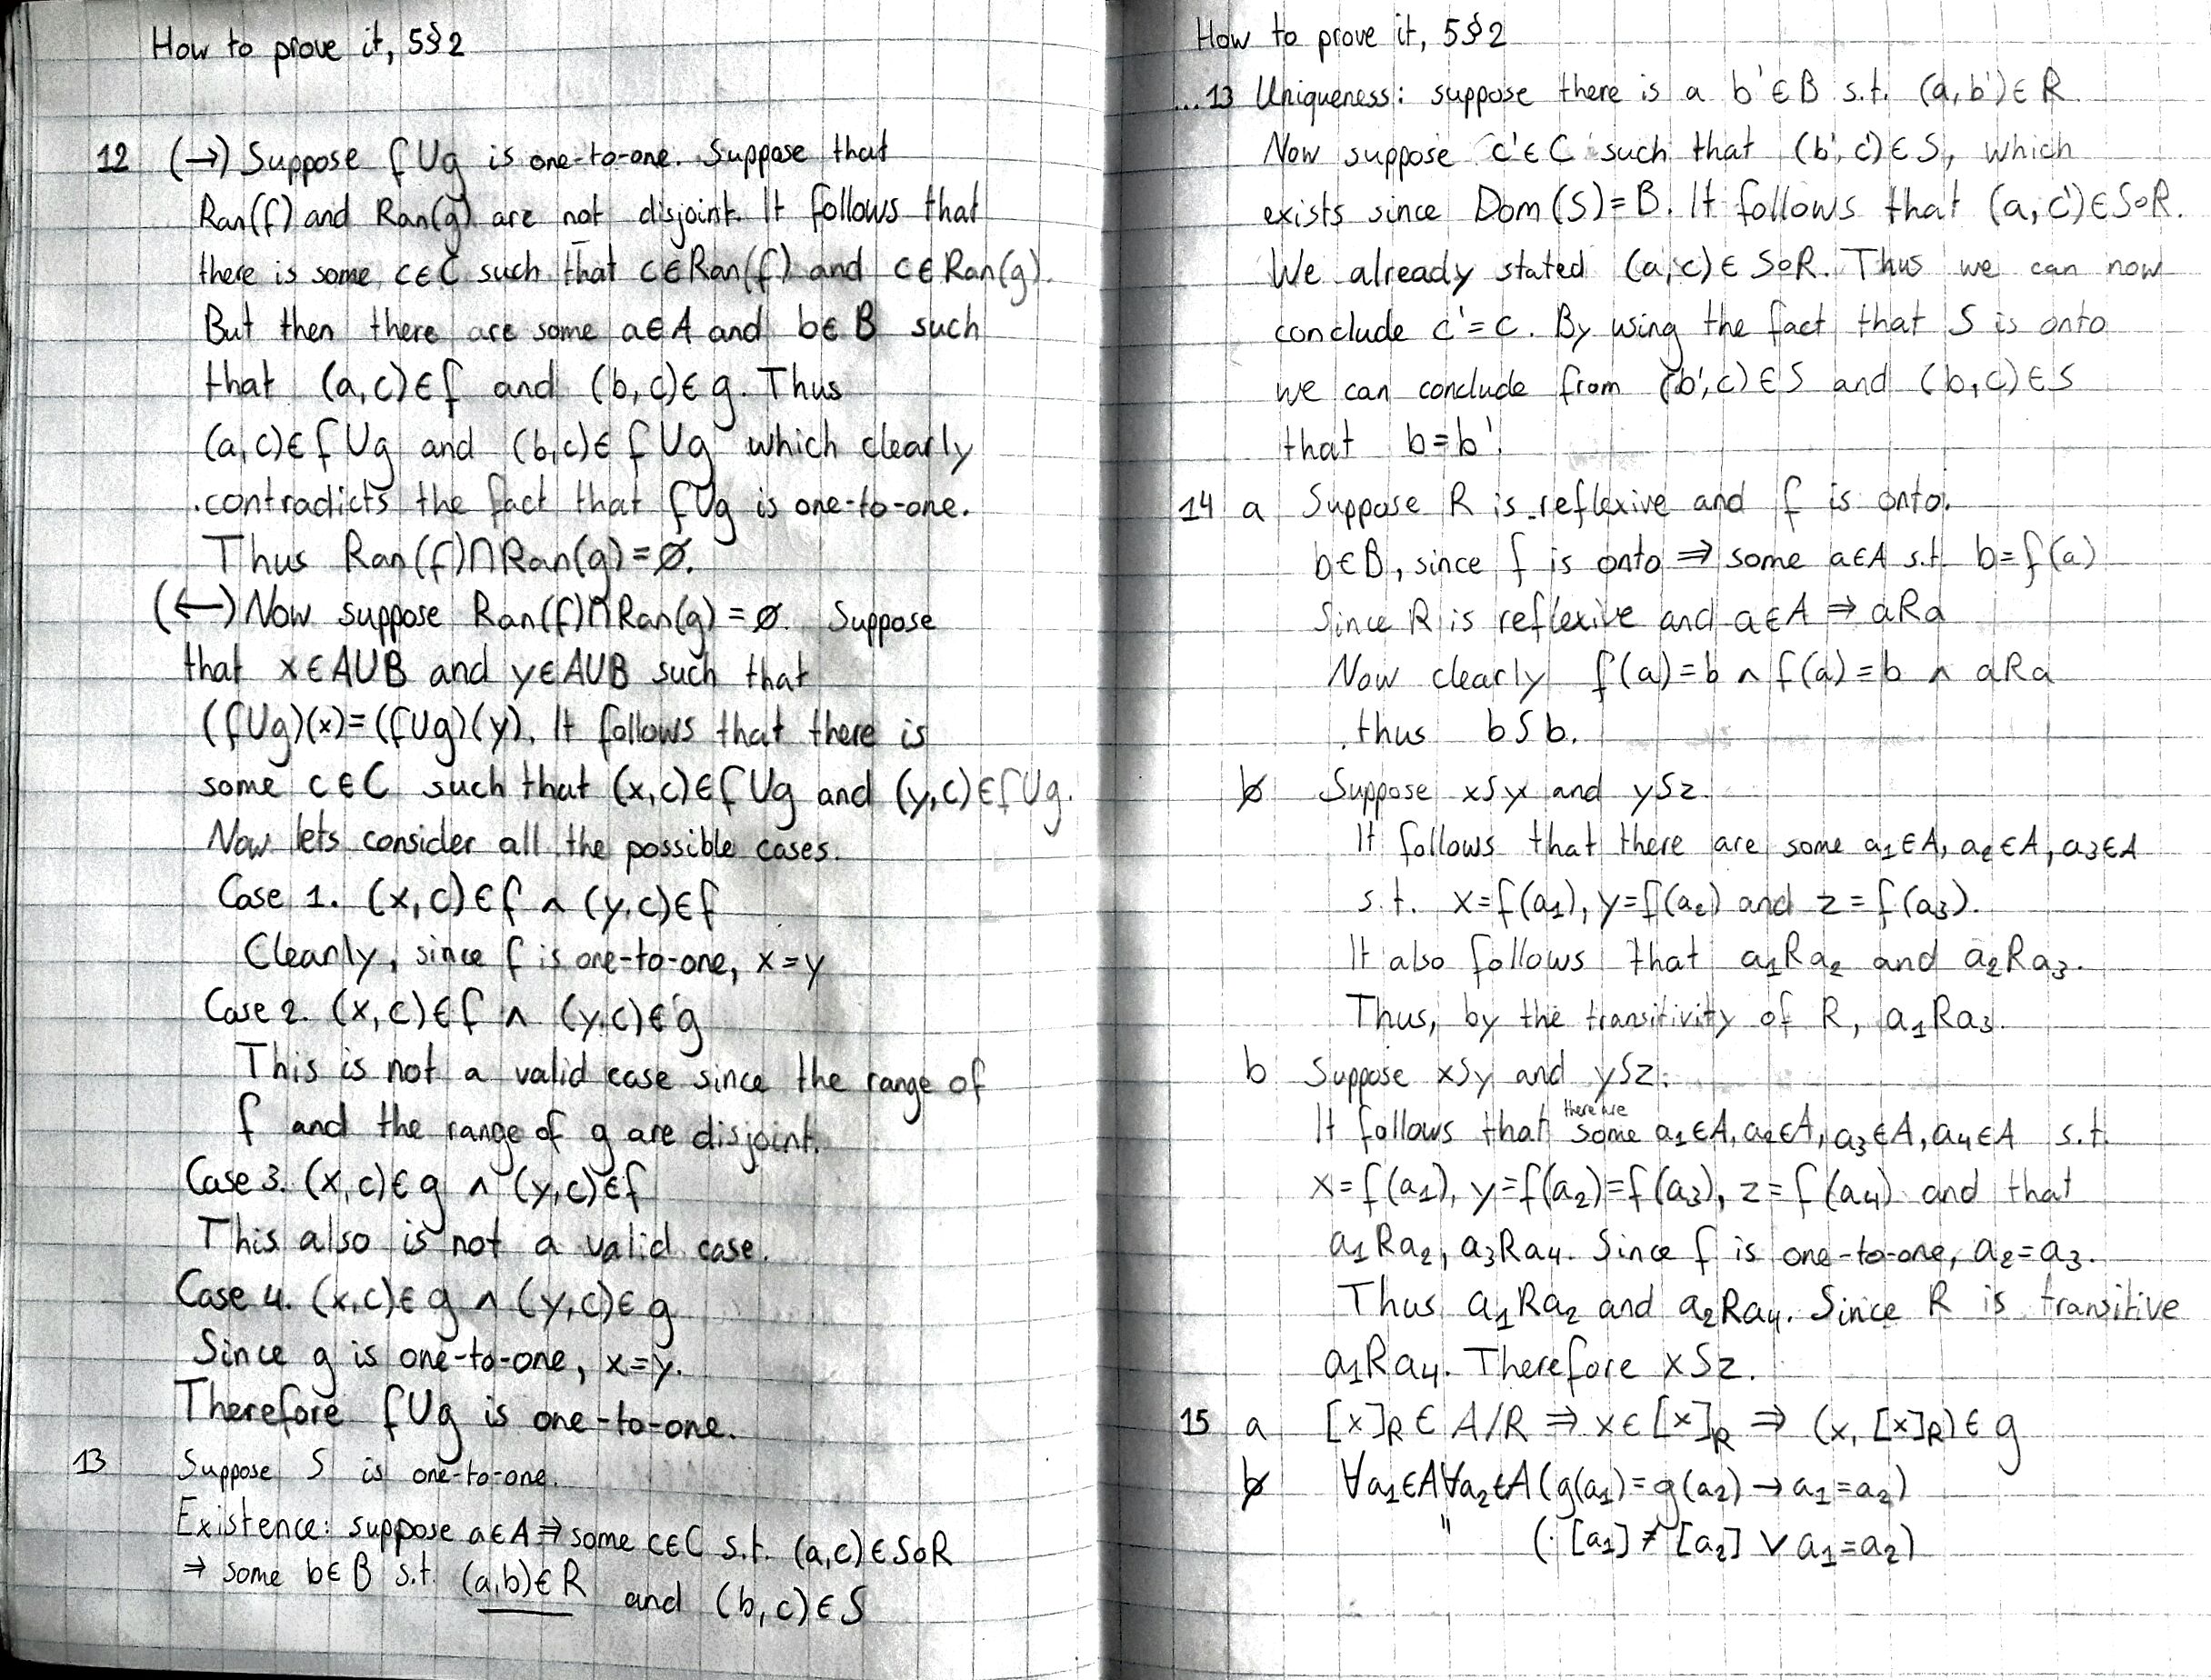 How to prove it, 5§2
12 (→) Suppose f∪g is one-to-one. Suppose that
Ran(f) and Ran(g) are not disjoint. It follows that
there is some c∈C such that c∈Ran(f) and c∈Ran(g).
But then there are some a∈A and b∈B such
that (a,c)∈f and (b,c)∈g. Thus
(a,c)∈f∪g and (b,c)∈f∪g which clearly
contradicts the fact that f∪g is one-to-one.
Thus Ran(f)∩Ran(g)=∅.
(←) Now suppose Ran(f)∩Ran(g)=∅. Suppose
that x∈A∪B and y∈A∪B such that
(f∪g)(x)=(f∪g)(y). It follows that there is
some c∈C such that (x,c)∈f∪g and (y,c)∈f∪g.
Now lets consider all the possible cases.
Case 1. (x,c)∈f ∧ (y,c)∈f
Clearly, since f is one-to-one, x=y
Case 2. (x,c)∈f ∧ (y,c)∈g
This is not a valid case since the range of
f and the range of g are disjoint.
Case 3. (x,c)∈g ∧ (y,c)∈f
This also is not a valid case.
Case 4. (x,c)∈g ∧ (y,c)∈g
Since g is one-to-one, x=y.
Therefore f∪g is one-to-one.
13 Suppose S is one-to-one.
Existence: suppose a∈A ⇒ some c∈C s.t. (a,c)∈S∘R
⇒ some b∈B s.t. (a,b)∈R and (b,c)∈S
How to prove it, 5§2
...13 Uniqueness: suppose there is a b'∈B s.t. (a,b')∈R.
Now suppose c'∈C such that (b',c')∈S, which
exists since Dom(S)=B. It follows that (a,c')∈S∘R.
We already stated (a,c)∈S∘R. Thus we can now
conclude c'=c. By using the fact that S is onto
we can conclude from (b',c)∈S and (b,c)∈S
that b=b'.
14 a Suppose R is reflexive and f is onto.
b∈B, since f is onto ⇒ some a∈A s.t. b=f(a)
Since R is reflexive and a∈A ⇒ aRa
Now clearly f(a)=b ∧ f(a)=b ∧ aRa
thus bSb.
b Suppose xSy and ySz.
It follows that there are some a₁∈A, a₂∈A, a₃∈A
s.t. x=f(a₁), y=f(a₂) and z=f(a₃).
It also follows that a₁Ra₂ and a₂Ra₃.
Thus, by the transitivity of R, a₁Ra₃.
b Suppose xSy and ySz.
It follows that there are some a₁∈A, a₂∈A, a₃∈A, a₄∈A s.t.
x=f(a₁), y=f(a₂)=f(a₃), z=f(a₄) and that
a₁Ra₂, a₃Ra₄. Since f is one-to-one, a₂=a₃.
Thus a₁Ra₂ and a₂Ra₄. Since R is transitive
a₁Ra₄. Therefore xSz.
15 a [x]R∈A/R ⇒ x∈[x]R ⇒ (x,[x]R)∈g
b ∀a₁∈A∀a₂∈A(g(a₁)=g(a₂)→a₁=a₂)
" ([a₁]≠[a₂] ∨ a₁=a₂)